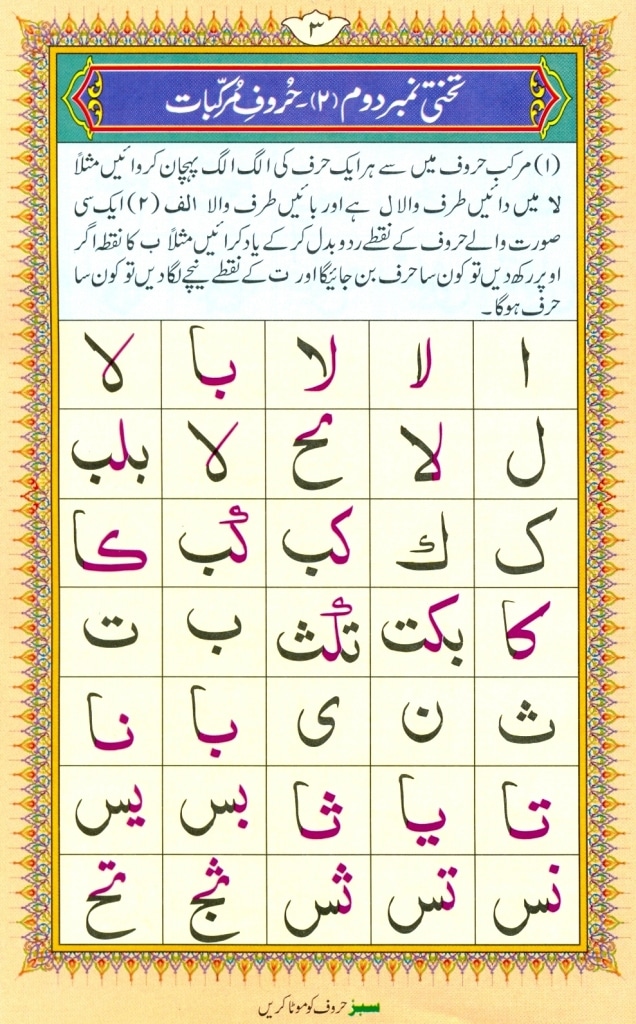 ۳
تختی نمبر دوم (۲)۔ حُروفِ مُرکّبات
(۱) مرکب حروف میں سے ہر ایک حرف کی الگ الگ پہچان کروائیں مثلاً
لا میں دائیں طرف والا ل ہے اور بائیں طرف والا الف (۲) ایک سی
صورت والے حروف کے نقطے ردو بدل کر کے یاد کرائیں مثلاً ب کا نقطہ اگر
اوپر رکھ دیں تو کون سا حرف بن جائیگا اور ت کے نقطے نیچے لگا دیں تو کون سا
حرف ہوگا۔
ا لا لا با لا
ل لا لح لا بلب
ک ك کب كب كا
کا بکت تكث ب ت
ث ن ی با نا
تا یا ثا بس یس
نس تس ثس ثج تح
سبز حروف کو موٹا کریں